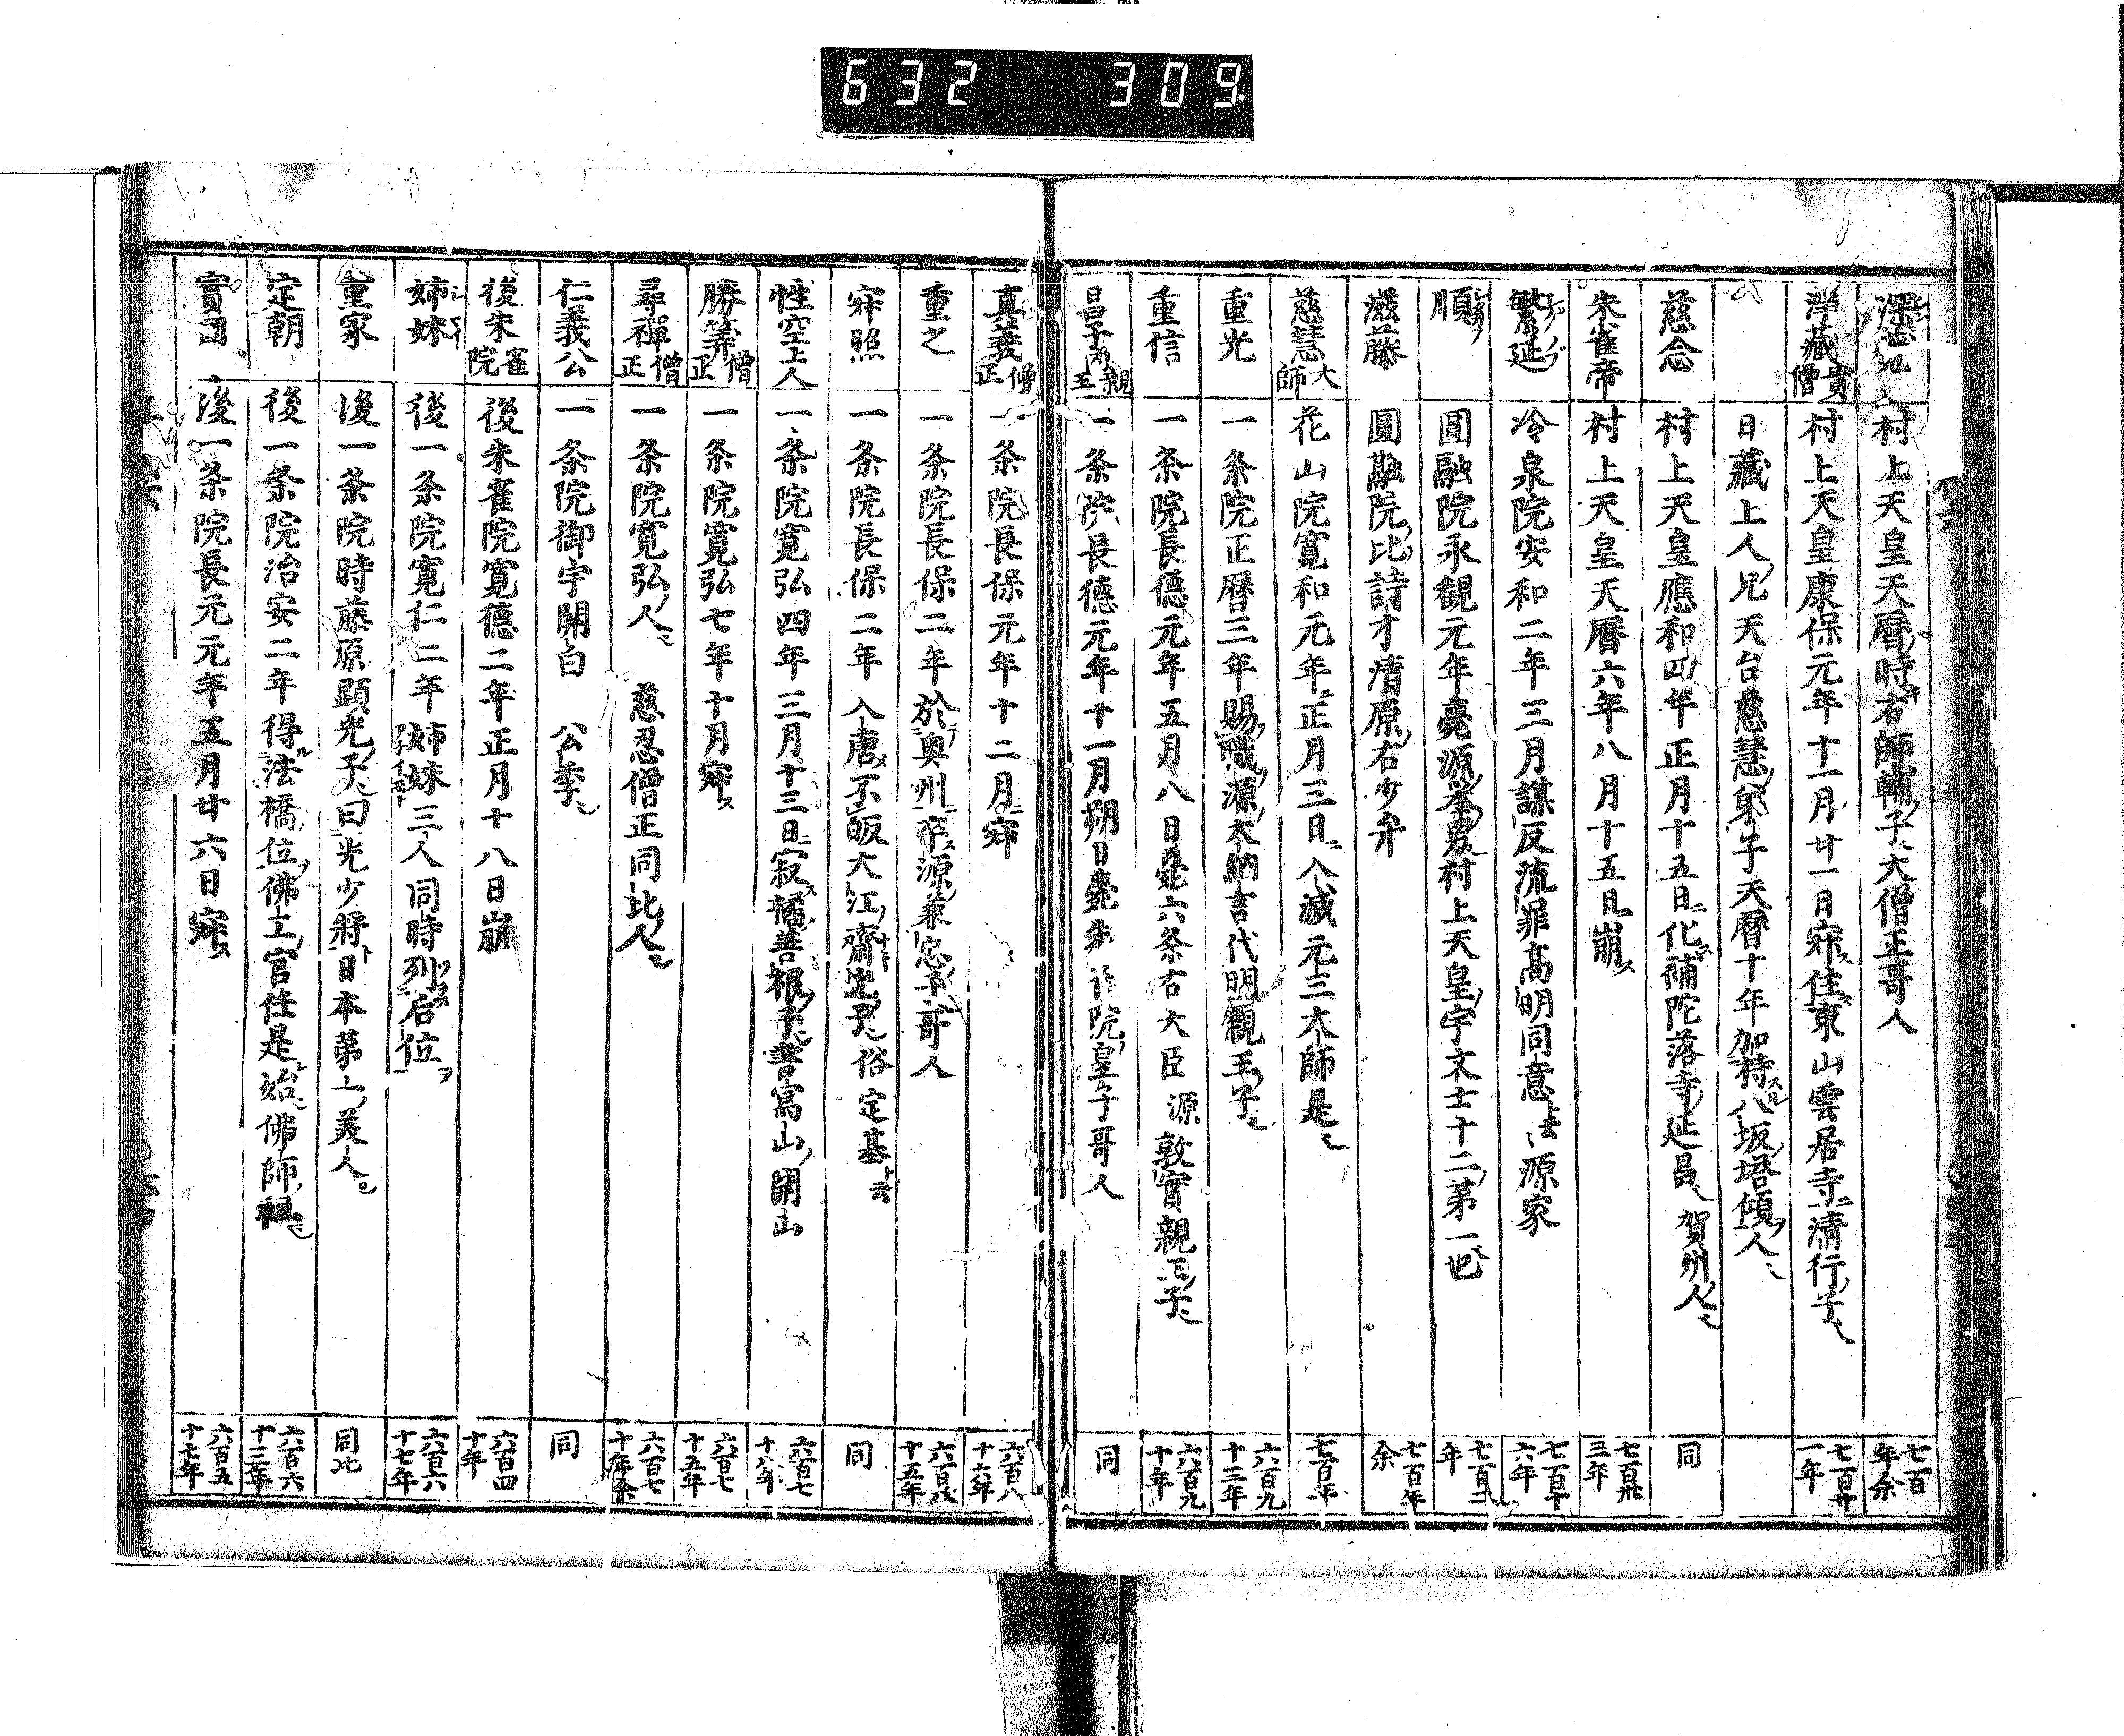 632 309
村上天皇天曆時右師輔子大僧正哥人 七百年余
淨藏貴僧 村上天皇康保元年十一月廿一日寂住東山雲居寺清行子 七百廿一年
日藏上人兄天台慈慧弟子天曆十年加持八坂塔傾人
慈念 村上天皇應和四年正月十五日化補陀落寺延昌賀州人 同
朱雀帝 村上天皇天曆六年八月十五日崩 七百卅三年
繁延 冷泉院安和二年三月謀反流罪高明同意 源家 七百十六年
順 圓融院永觀元年薨源 男村上天皇宇文士十二第一也 七百二年
滋藤 圓融院比詩才清原右少弁 七百年余
慈慧大師 花山院寬和元年正月三日入滅元三大師是 七百年
重光 一条院正曆三年賜職源大納言代明觀王子 六百九十三年
重信 一条院長德元年五月八日薨六条右大臣 源敦實親王子 六百九十年
昌子内親王 一条院長德元年十一月朔日薨朱 院皇子哥人 同
真義僧正 一条院長保元年十二月寂 六百八十六年
重之 一条院長保二年於奧州卒源兼忠子哥人 六百八十五年
寂照 一条院長保二年入唐不皈大江齋光子俗定基ト云 同
性空上人 一条院寬弘四年三月十三日寂橘善根子書寫山開山 六百七十八年
勝筭僧正 一条院寬弘七年十月寂 六百七十五年
尋禪僧正 一条院寬弘人 慈忍僧正同比人 六百七十年余
仁義公 一条院御宇關白 公季 同
後朱雀院 後朱雀院寬德二年正月十八日崩 六百四十年
姉妹 後一条院寬仁二年姉妹三人同時列后位 六百六十七年
重家 後一条院時藤原顯光子曰光少將日本第一美人 同比
定朝 後一条院治安二年得法橋位佛工官任是始佛師祖 六百六十三年
後一条院長元元年五月廿六日寂 六百五十七年